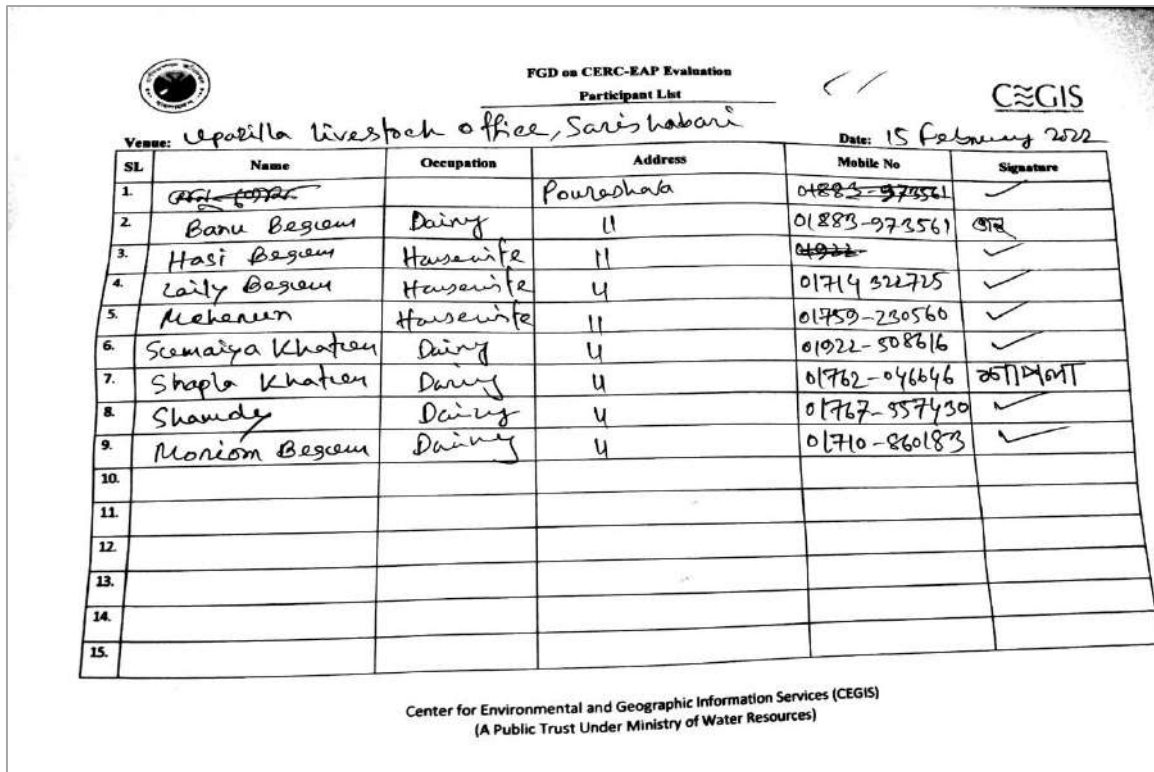 FGD on CERC-EAP Evaluation
Participant List
CEGIS
Venue: Upazilla livestock office, Sarishabari Date: 15 February 2022
SL Name Occupation Address Mobile No Signature
1. Pourashava 01883-973561
2. Banu Begum Dairy 11 01883-973561
3. Hasi Begum Housewife 11 01922-
4. Laily Begum Housewife 11 01714 322725
5. Meherun Housewife 11 01759-230560
6. Sumaiya Khatun Dairy 11 01922-508616
7. Shapla Khatun Dairy 11 01762-046646
8. Dairy 11 01767-557430
9. Moriom Begum Dairy 11 01710-860183
10.
11.
12.
13.
14.
15.
Center for Environmental and Geographic Information Services (CEGIS)
(A Public Trust Under Ministry of Water Resources)